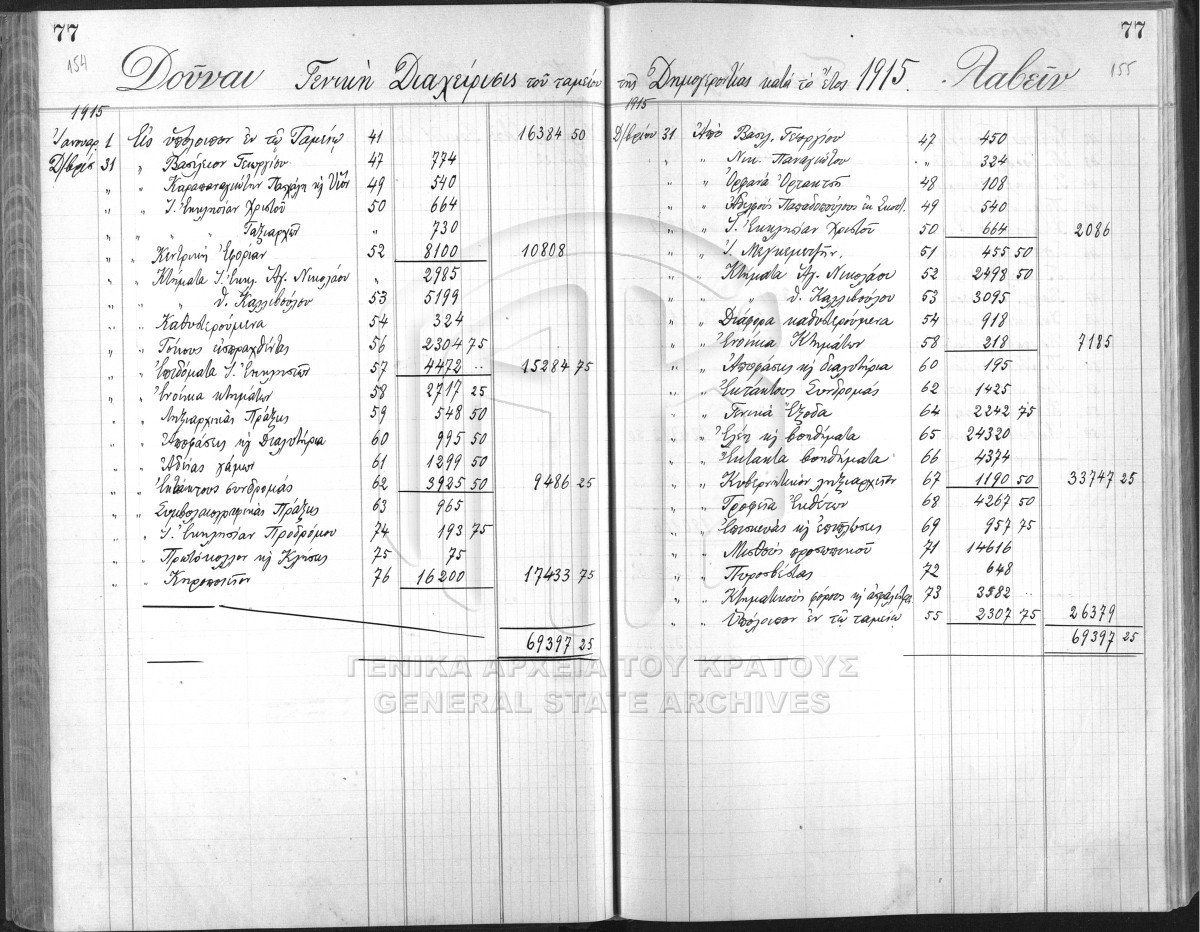 77
154
Δοῦναι Γενικὴ Διαχείρισις τοῦ ταμείου
1915
Ἰανουαρ. 1 Εἰς ὑπόλοιπον ἐν τῷ Ταμείῳ 41 16384 50
Δ/βρίου 31 " Βασίλειον Γεωργίου 47 774
" " Καραπαναγιώτην Πασχάλη κ 49 540
" " Ἰ. Ἐκκλησίαν Χριστοῦ 50 664
" " " " Ταξιαρχῶν " 730
" " Κεντρικὴν Ἐφορίαν 52 8100 10808
" " Κτήματα Ἰ. Ἐκκλ. Ἁγ. Νικολάου " 2985
" " " " Καλλιβούλου 53 5199
" " Καθυστερούμενα 54 324
" " Τόκους εἰσπραχθέντας 56 2304 75
" " Ἐπιδόματα Ἰ. Ἐκκλησιῶν 57 4472 .. 15284 75
" " Ἐνοίκια κτημάτων 58 2717 25
" " Ληξιαρχικὰς Πράξεις 59 548 50
" " Ἀποφάσεις κ διαλυτήρια 60 995 50
" " Ἀδείας γάμων 61 1299 50
" " Ἐκτάκτους συνδρομάς 62 3925 50 9486 25
" " Συμβολαιογραφικὰς Πράξεις 63 965
" " Ἰ. Ἐκκλησίαν Προδρόμου 74 193 75
" " Πρωτόκολλον κ Κλήσεις 75 75
" " Κηροποιεῖον 76 16200 17433 75
69397 25
77
155
τῆς Δημογεροντίας κατὰ τὸ ἔτος 1915. Λαβεῖν
1915
Δ/βρίου 31 Ἀπὸ Βασιλ. Γεωργίου 47 450
" " Νικ. Παναγιώτου " 324
" " Ὀρφανὰ Ὀρτακτσῆ 48 108
" " Ἀδελφοὺς Παπαδοπούλους ἐκ 49 540
" " Ἰ. Ἐκκλησίαν Χριστοῦ 50 664 2086
" " 51 455 50
" " Κτήματα Ἁγ. Νικολάου 52 2498 50
" " " Καλλιβούλου 53 3095
" " Διάφορα καθυστερούμενα 54 918
" " Ἐνοίκια Κτημάτων 58 218 7185
" " Ἀποφάσεις κ διαλυτήρια 60 195
" " Ἐκτάκτους Συνδρομάς 62 1425
" " Γενικὰ Ἔξοδα 64 2242 75
" " Ἐλέη κ βοηθήματα 65 24320
" " Ἔκτακτα βοηθήματα 66 4374
" " Κυβερνητικὸν ληξιαρχεῖον 67 1190 50 33747 25
" " Τροφεῖα Ἐκθέτων 68 4267 50
" " Ἐπισκευὰς κ ἐπιπλώσεις 69 957 75
" " Μισθοὺς προσωπικοῦ 71 14616
" " Πυροσβέστας 72 648
" " Κτηματικοὺς φόρους κ ἀσφάλιστρα 73 3582 ..
" " Ὑπόλοιπον ἐν τῷ ταμείῳ 55 2307 75 26379
69397 25
ΓΕΝΙΚΑ ΑΡΧΕΙΑ ΤΟΥ ΚΡΑΤΟΥΣ
GENERAL STATE ARCHIVES